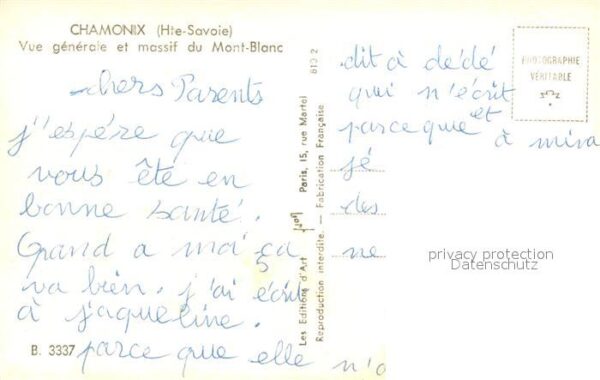 CHAMONIX (Hte-Savoie)
Vue générale et massif du Mont-Blanc
chers Parents
j'espére que
vous ête en
bonne santé.
Grand a moi ça
va bien. j'ai écrit
à jaqueline.
parce que elle n'a
B. 3337
813 2
Les Editions d'Art Jof Paris, 15, rue Martel
Reproduction interdite. - Fabrication Française
PHOTOGRAPHIE
VÉRITABLE
dit à dédé
qui n'écrit
parce que et à mira
jé
des
ne
privacy protection
Datenschutz